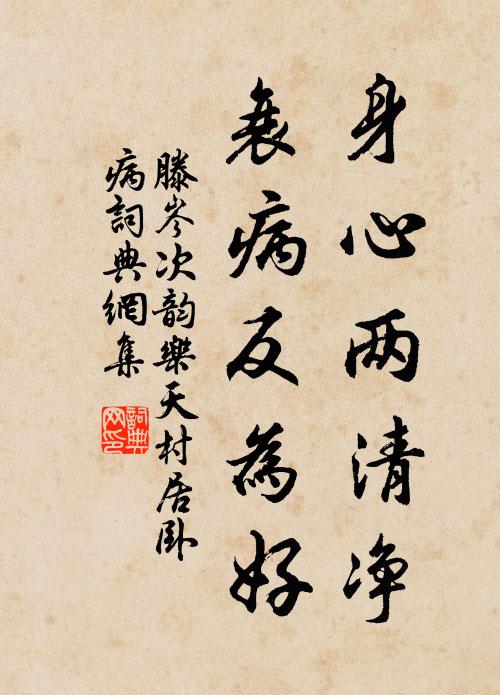 身心两清净
衰病反為好
滕岑次韵樂天村居卧
病詞典網集
詞典
网印